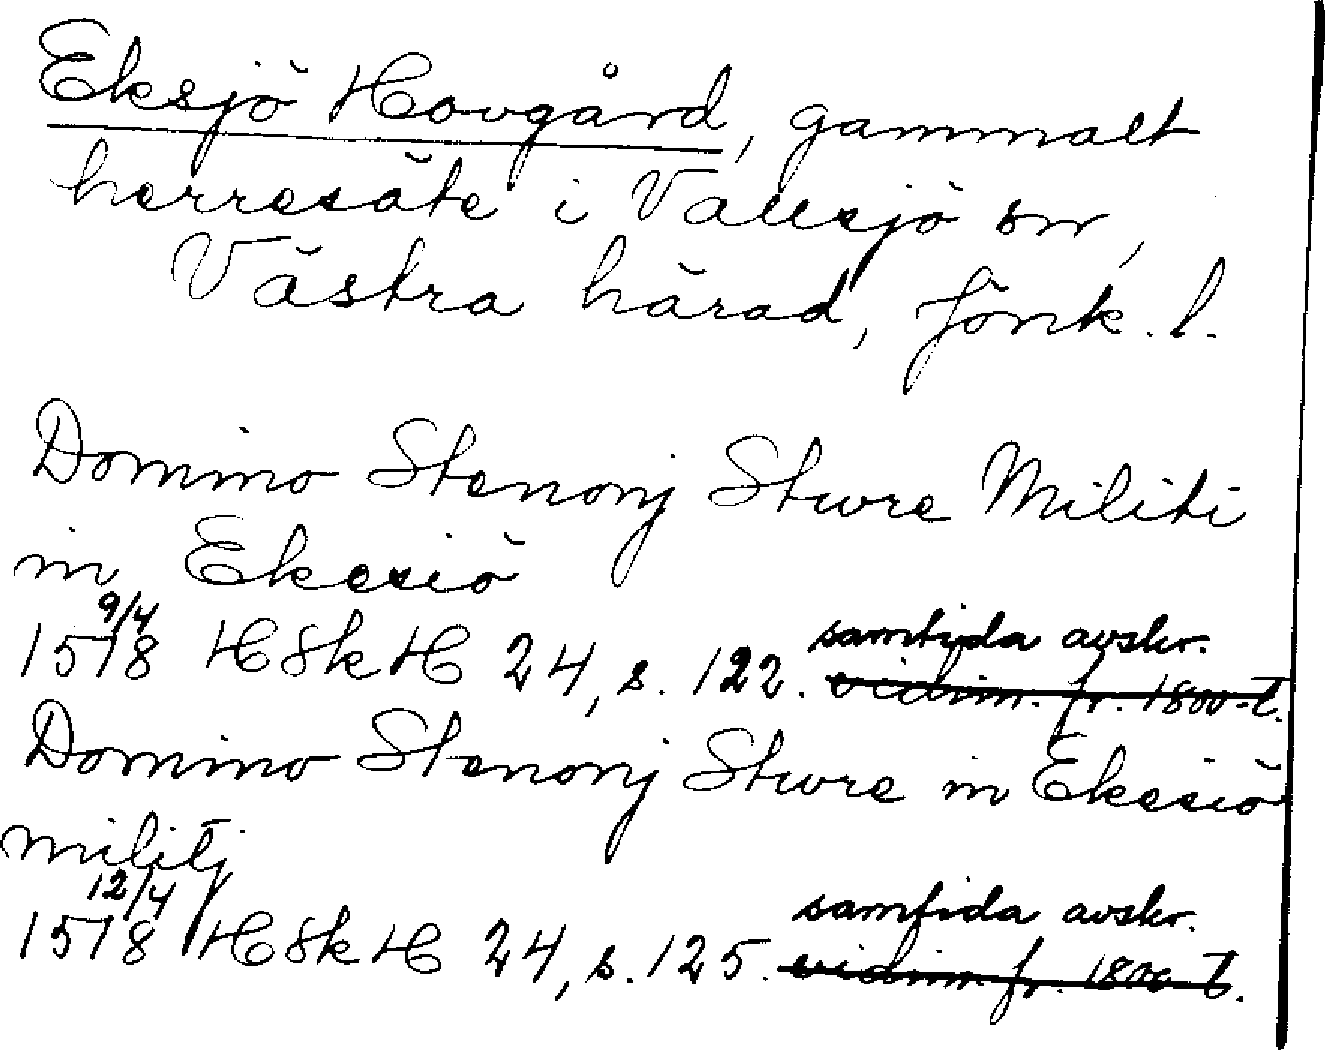 Eksjö Hovgård, gammalt
herresäte i Vallsjö sn,
Västra härad, Jönk. l.
Domino Stenonj Sture Militi
in Ekesiö
9/4 samtida avskr.
1518 HSkH 24, s. 122. vidim. fr. 1800-t.
Domino Stenonj Sture in Ekesiö
militj
12/4 samtida avskr.
1518 HSkH 24, s. 125. vidim. fr. 1800-t.